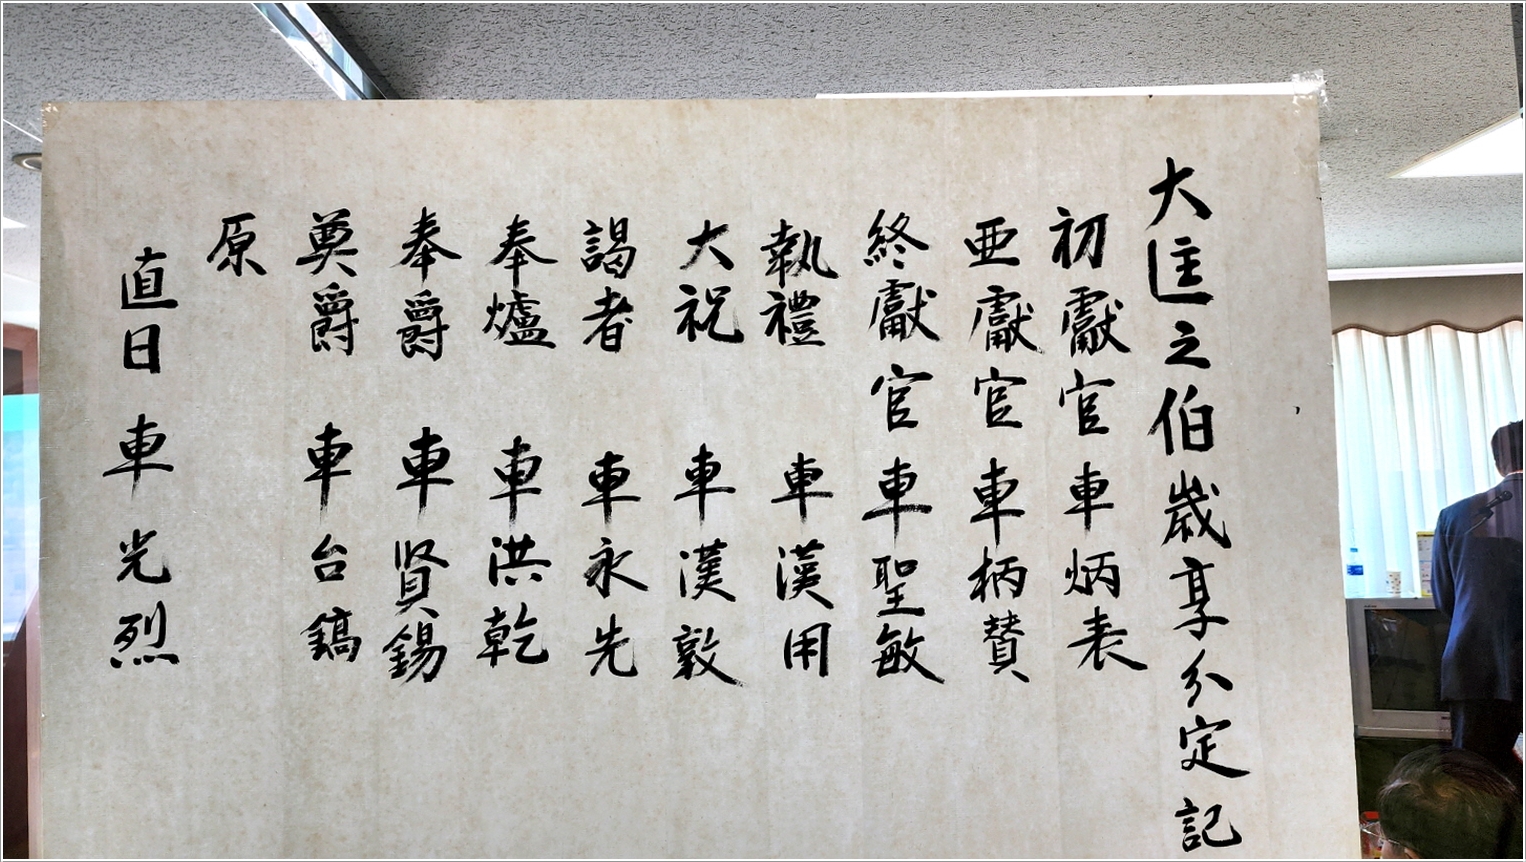 大匡之伯歲享分定記
初獻官 車炳表
亜獻官 車柄賛
終獻官 車聖敏
執禮 車漢用
大祝 車漢敦
謁者 車永先
奉爐 車洪乾
奉爵 車賢錫
奠爵 車台鎬
原
直日 車光烈